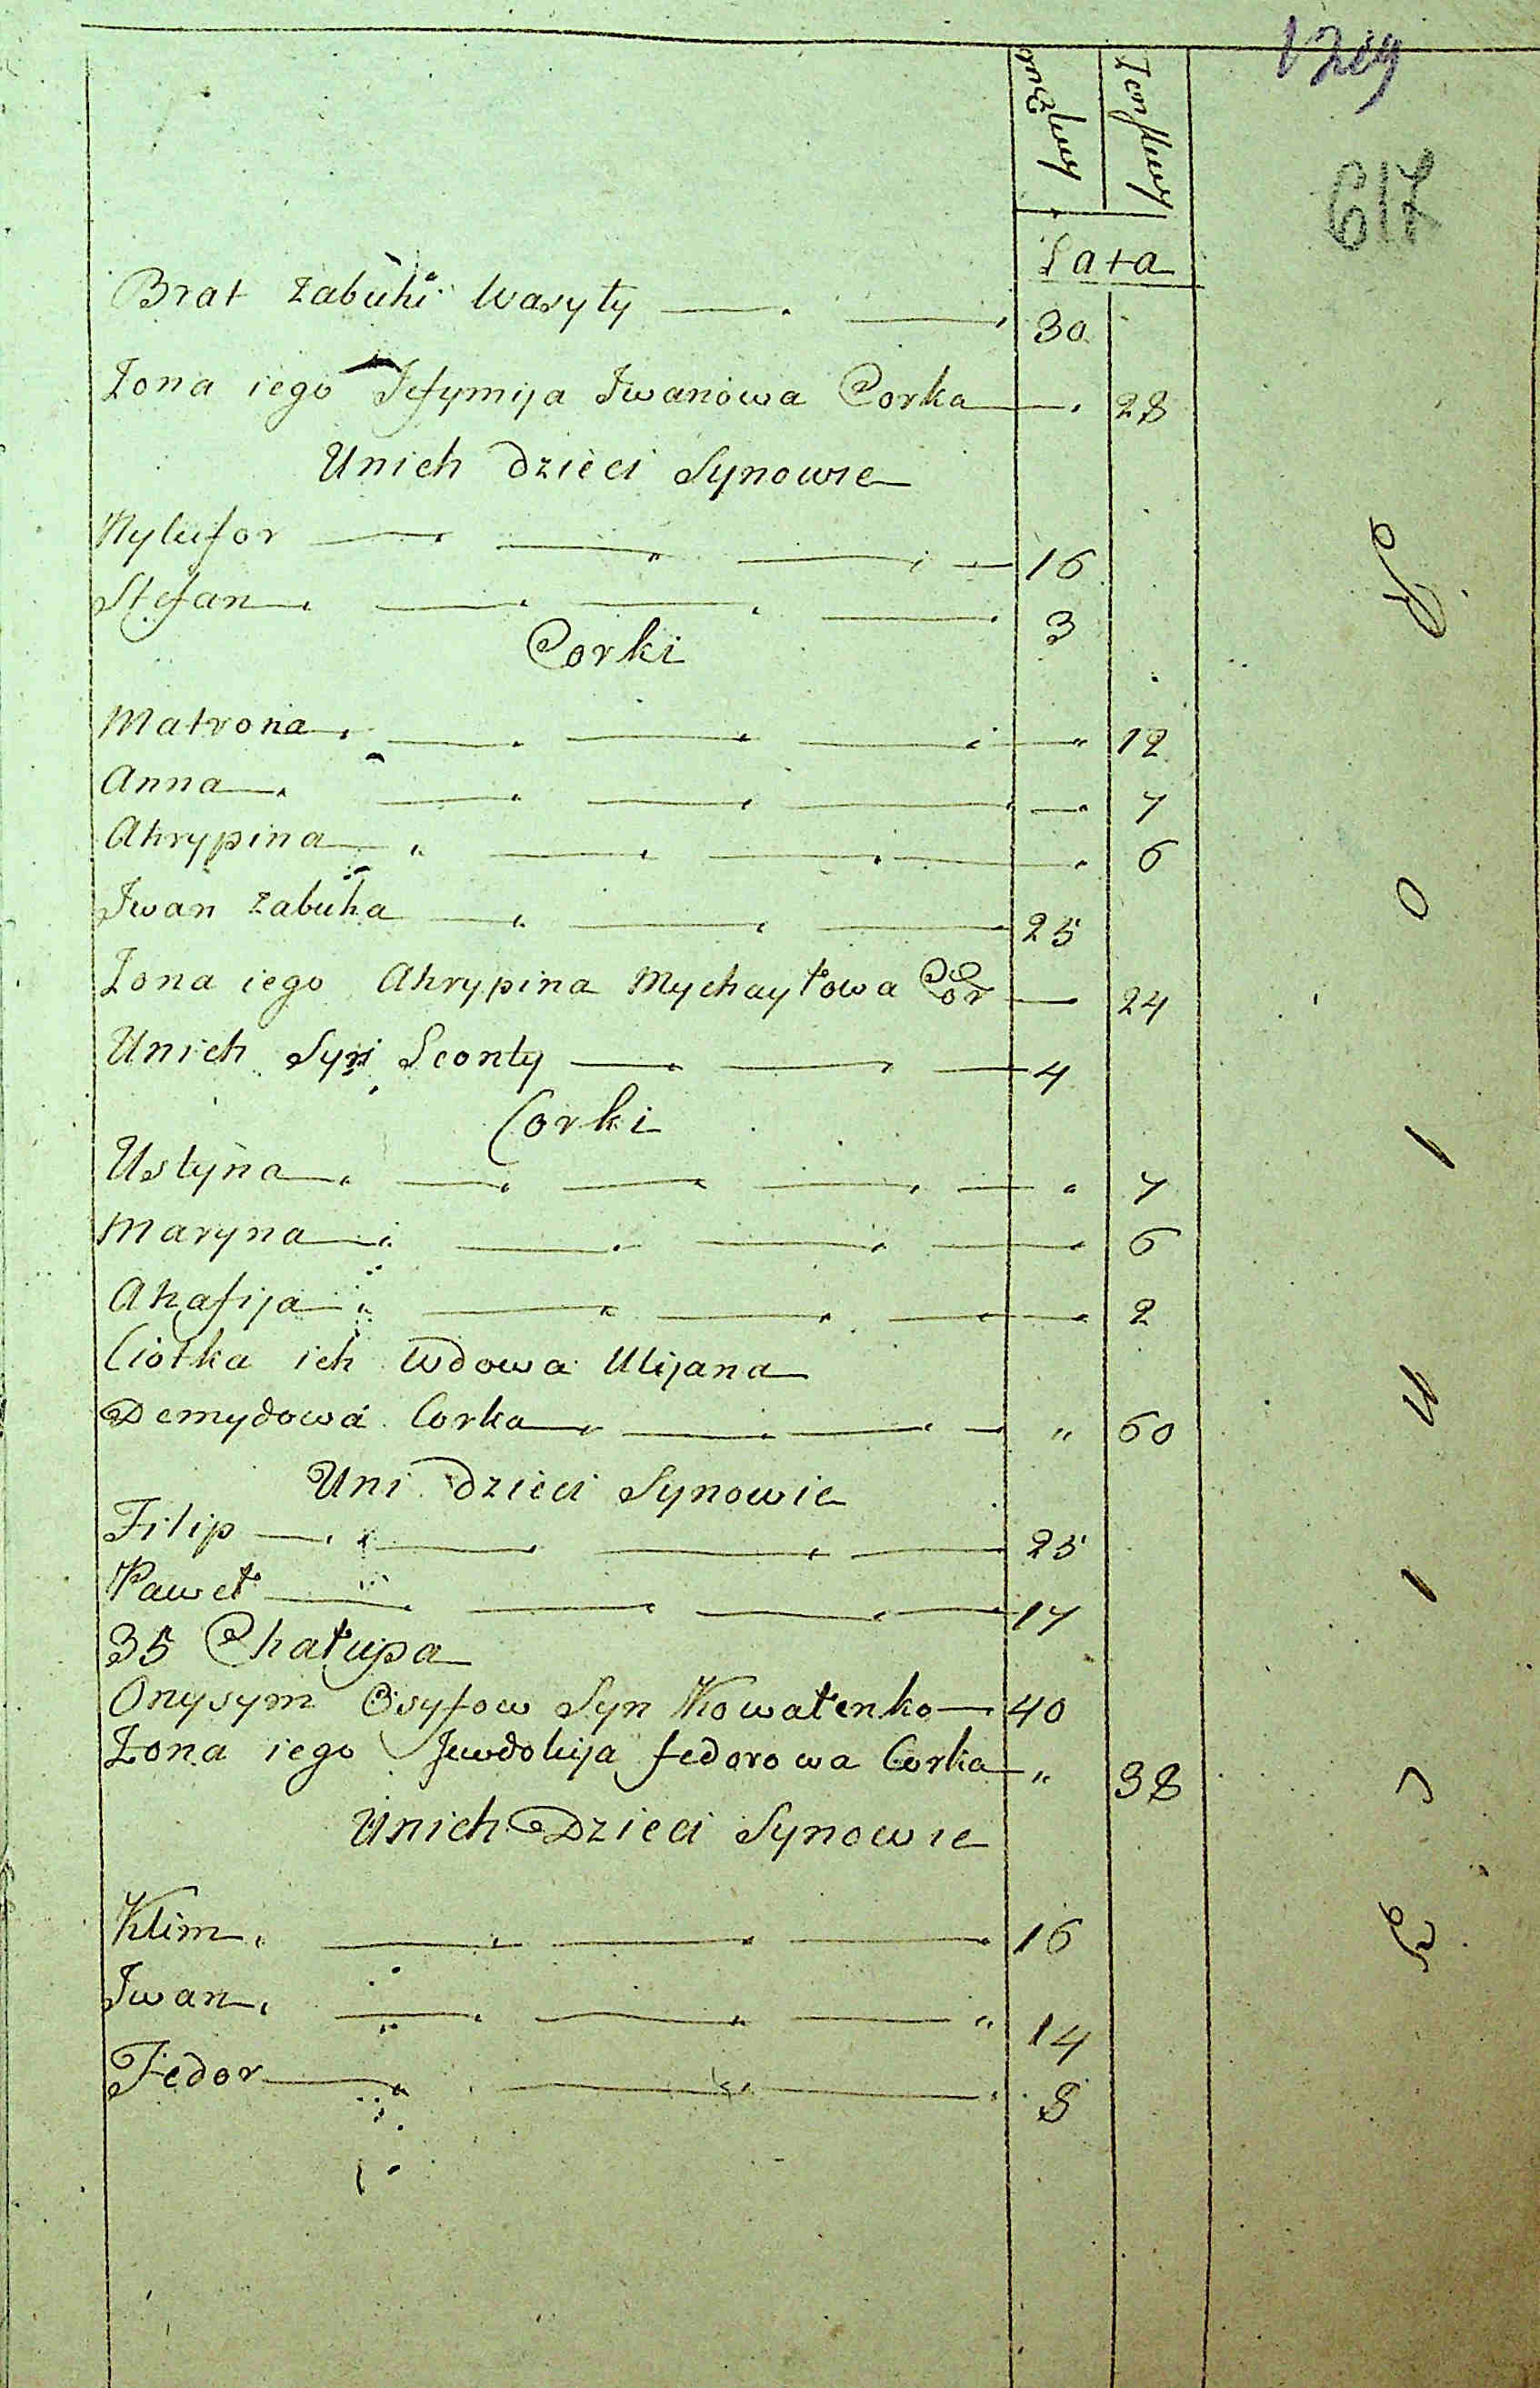 1219
617
męskey Żenskey
Lata
Brat Zabuhi Wasyły 30
Zona iego Jefymija Jwanowa Corka 28
Unich dzieci Synowie
Nykifor 16
Stefan 3
Corki
Matrona 12
Anna 7
Ahrypina 6
Jwan Zabuha 25
Zona iego Ahrypina Mychayłowa Cor 24
Unich Syn Leonty 4
Corki
Ustyna 7
Maryna 6
Ahafija 2
Ciotka ich Wdowa Ulijana
Demydowa Corka " 60
Uni dzieci Synowie
Filip 25
Paweł 17
35 Chałupa
Onysym Osyfow Syn Kowalenko 40
Zona iego Jewdokija fedorowa Corka " 38
Unich Dzieci Synowie
Klim 16
Jwan 14
Fedor 8